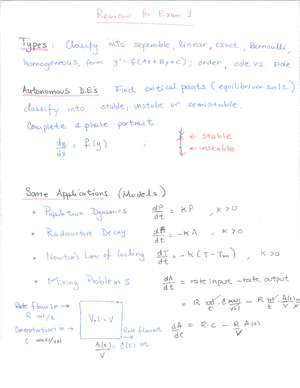 Review for Exam 1
Types: Classify into seperable, linear, exact, Bernoulli,
homogeneous, form y' = f(Ax + By + C); order, ode vs. pde
Autonomous D.E's Find critical points (equilibrium sols.)
classify into stable, unstable or semistable.
Complete a phase portrait
dy/dx = f(y)
← stable
← unstable
Some Applications (Models)
• Population Dynamics dP/dt = kP , k > 0
• Radioactive Decay dA/dt = -kA , k > 0
• Newton's Law of Cooling dT/dt = -k(T - Tm) , k > 0
• Mixing Problems dA/dt = rate input - rate output
= R vol/t · C mass/vol - R vol/t · A(t)/V
Rate flow in →
R vol/t
Concentration is →
C mass/vol
Vol = V
Rate flow out
A(t)/V = C(t) at
dA/dt = R·C - R/V A(t)